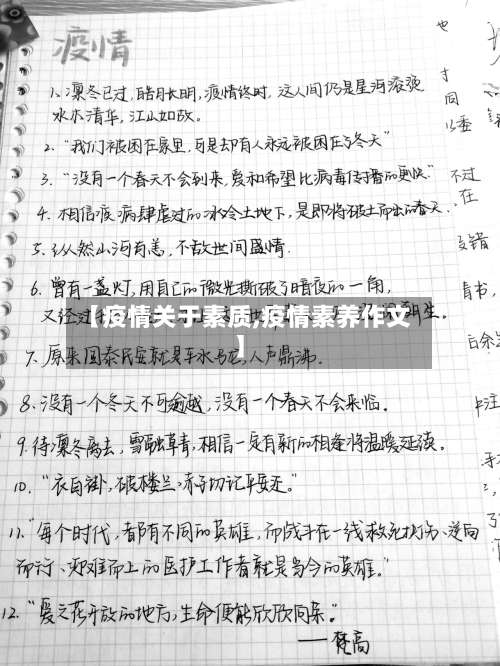 疫情
1. 凛冬已过,皓月长明,疫情终时,这人间仍是星河滚烫
水木清华,江山如故。
2. “我们被困在家里,可是却有人永远被困在了冬天”
3. “没有一个春天不会到来,爱和希望比病毒传播的更快”
4. 相信疫病肆虐过的冰冷土地下,是即将破土而出的春天.
5. 纵然山河有恙,不敌世间盛情.
6. 曾有一盏灯,用自己的微光撕破了暗夜的一角,
又经过
【疫情关于素质,疫情素养作文
】
7. 原来国泰民安就是车水马龙,人声鼎沸.
8. 没有一个冬天不可逾越,没有一个春天不会来临.
9. 待凛冬离去,雪融草青,相信一定有新的相逢将温暖延续.
10. “衣白褂,破楼兰.赤子切记平安还.”
11. “每个时代,都有不同的英雄,而战斗在一线救死扶伤、逆向
而行、迎难而上的医护工作者就是当今的英雄.”
12. “爱之花开放的地方,生命便能欣欣向荣.”
——梵高
也
才
同
以委
不过
在
交错
青书,
白余